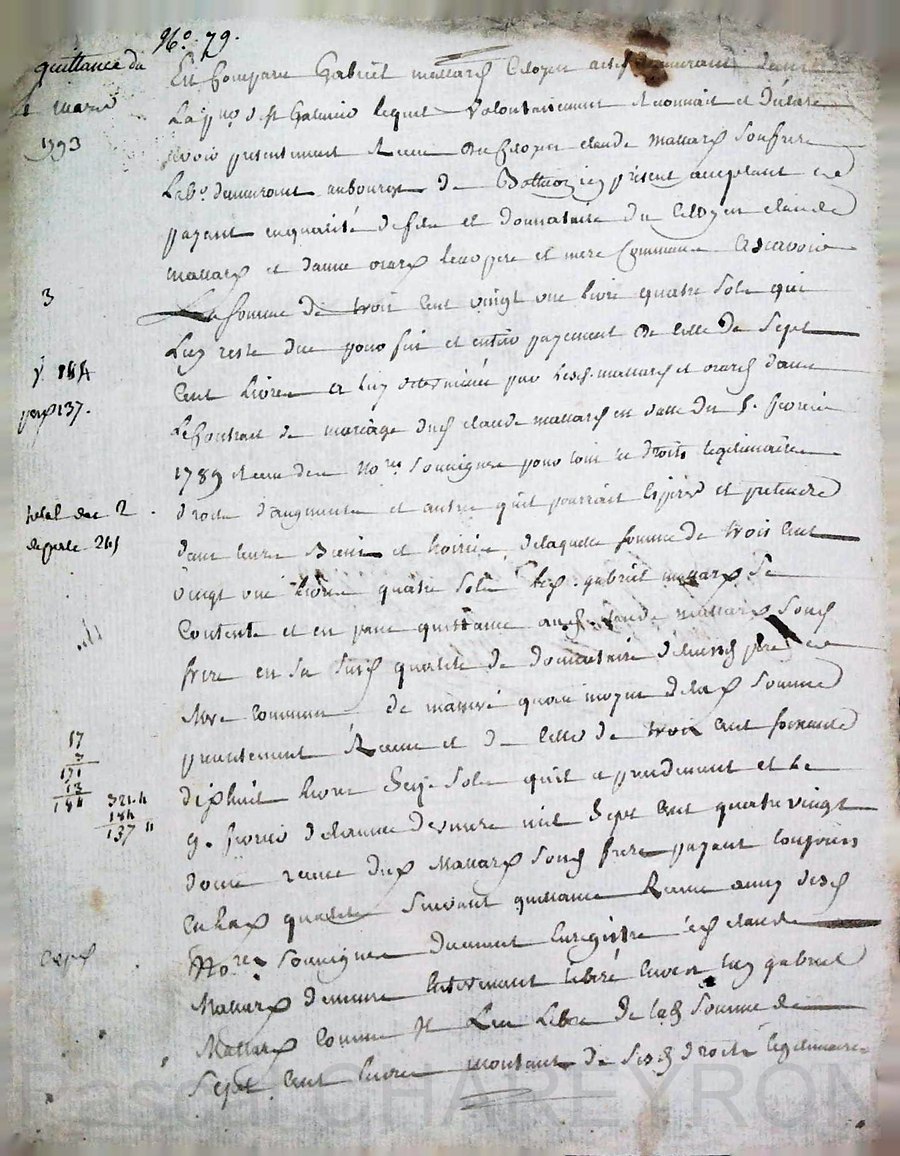 No. 79.
quittance du
1 mars
1793
Est Comparu Gabriel mallard Citoyen demeurant
La psse de st Galmier lequel volontairement Reconnait et déclare
avoir presentement Receu du Citoyen claude mallard son frere
Labr. demeurant au bourg de présent acceptant et
payant en qualité de fils et donnataire du Citoyen claude
mallard et d'anne orard leur pere et mere Commune Ascavoir
La somme de trois Cent vingt une livre quatre sols qui
Luy reste due pour fin et entier payement de Celle de Sept
Cent Livres a luy déterminée par lesd. mallard et orard dans
Le Contrat de mariage dud claude mallard en datte du
1789 Receu des Nores. Soussignes pour tout ses droits legitimaires
droits d'augment et autres qu'il pourrait esperer et pretendre
dans leurs Biens et hoirie, de laquelle somme de trois Cent
vingt une livre quatre sols led. gabriel mallard se
Contente et en passe quittance aud. claude mallard Sond
frere en sa susd qualité de donnataire desdits pere et
Mere Commun de maniere qu'au moyen de lad Somme
presentement Receue et de Celle de trois Cent soixante
dixhuit livres Seize Sols qu'il a precedemment et le
9. fevrier de l'année derniere mil Sept Cent quatre vingt
douze receue dud Mallard Sond frere payant toujours
En lad qualité Suivant quittance Receue aussy desd
Nores Soussignes duement Enregistrée led claude
Mallard demeure Entierement libéré Envers luy gabriel
Mallard Comme il Les Libere de lad Somme de
Sept Cent livres montant de Sesd droits legitimaires
3
184
137.
total des 2
17
3
171
13
184
321.4
184
137 "
Pascal CHAREYRON